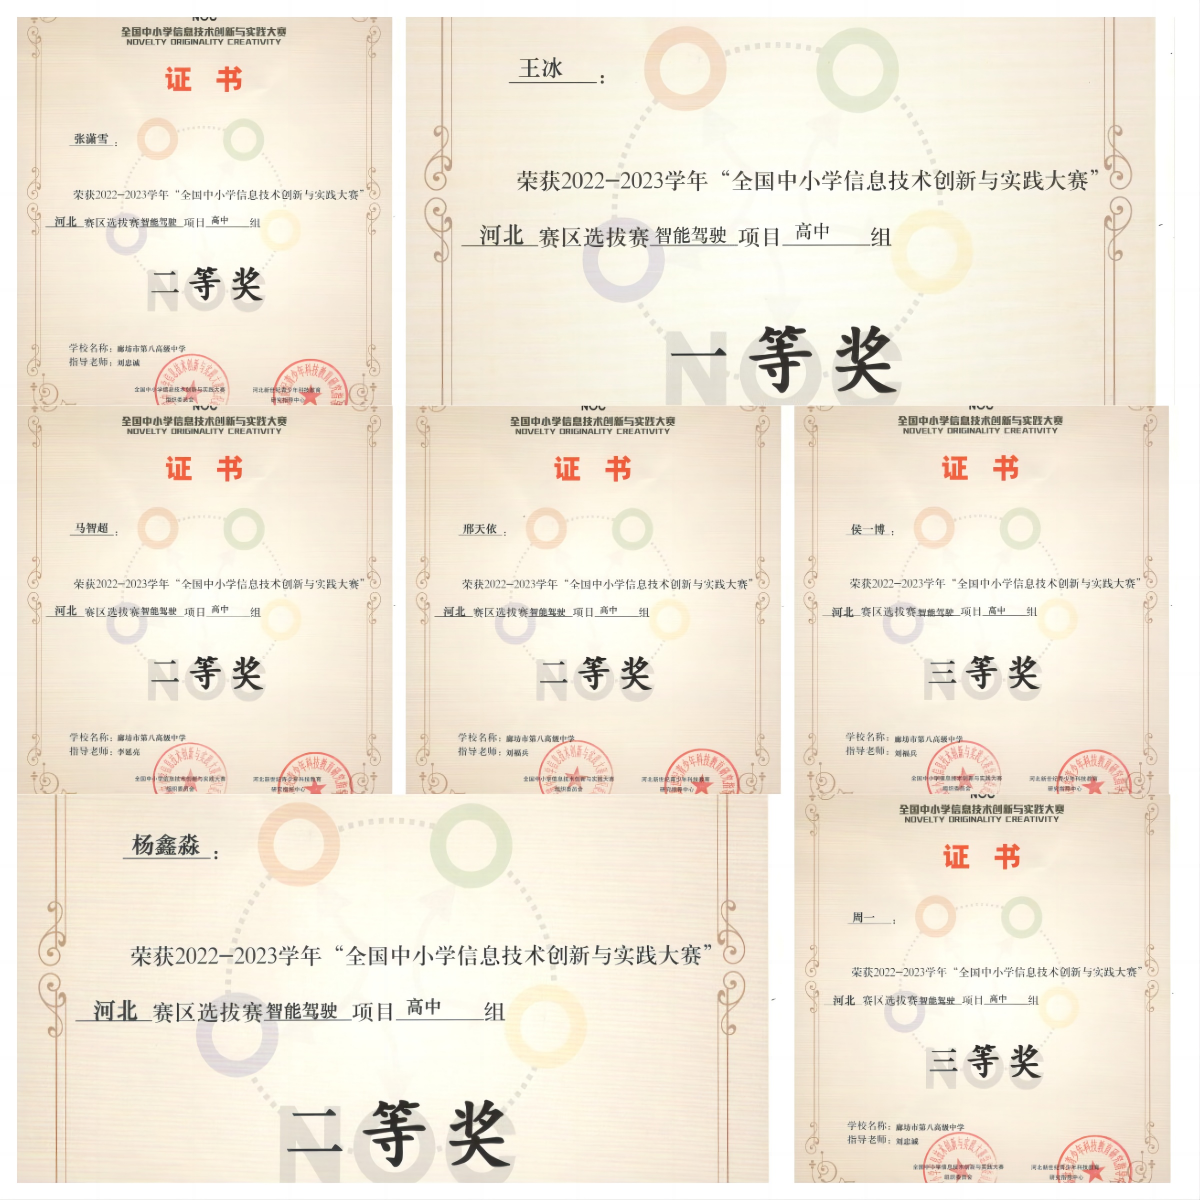 NOC
全国中小学信息技术创新与实践大赛
NOVELTY ORIGINALITY CREATIVITY
证 书
张潇雪：
荣获2022-2023学年“全国中小学信息技术创新与实践大赛”
河北 赛区选拔赛 智能驾驶 项目 高中 组
NOC
二等奖
学校名称：廊坊市第八高级中学
指导老师：刘忠诚
全国中小学信息技术创新与实践大赛
组织委员会
河北新世纪青少年科技教育
研究指导中心
王冰：
荣获2022-2023学年“全国中小学信息技术创新与实践大赛”
河北 赛区选拔赛 智能驾驶 项目 高中 组
NOC
一等奖
NOC
全国中小学信息技术创新与实践大赛
NOVELTY ORIGINALITY CREATIVITY
证 书
马智超：
荣获2022-2023学年“全国中小学信息技术创新与实践大赛”
河北 赛区选拔赛 智能驾驶 项目 高中 组
NOC
二等奖
学校名称：廊坊市第八高级中学
指导老师：李延亮
全国中小学信息技术创新与实践大赛
组织委员会
河北新世纪青少年科技教育
研究指导中心
NOC
全国中小学信息技术创新与实践大赛
NOVELTY ORIGINALITY CREATIVITY
证 书
邢天依：
荣获2022-2023学年“全国中小学信息技术创新与实践大赛”
河北 赛区选拔赛 智能驾驶 项目 高中 组
NOC
二等奖
学校名称：廊坊市第八高级中学
指导老师：刘福兵
全国中小学信息技术创新与实践大赛
组织委员会
河北新世纪青少年科技教育
研究指导中心
NOC
全国中小学信息技术创新与实践大赛
NOVELTY ORIGINALITY CREATIVITY
证 书
侯一博：
荣获2022-2023学年“全国中小学信息技术创新与实践大赛”
河北 赛区选拔赛 智能驾驶 项目 高中 组
NOC
三等奖
学校名称：廊坊市第八高级中学
指导老师：刘福兵
全国中小学信息技术创新与实践大赛
组织委员会
河北新世纪青少年科技教育
研究指导中心
杨鑫淼：
荣获2022-2023学年“全国中小学信息技术创新与实践大赛”
河北 赛区选拔赛 智能驾驶 项目 高中 组
NOC
二等奖
NOC
全国中小学信息技术创新与实践大赛
NOVELTY ORIGINALITY CREATIVITY
证 书
周一：
荣获2022-2023学年“全国中小学信息技术创新与实践大赛”
河北 赛区选拔赛 智能驾驶 项目 高中 组
NOC
三等奖
学校名称：廊坊市第八高级中学
指导老师：刘忠诚
全国中小学信息技术创新与实践大赛
组织委员会
河北新世纪青少年科技教育
研究指导中心